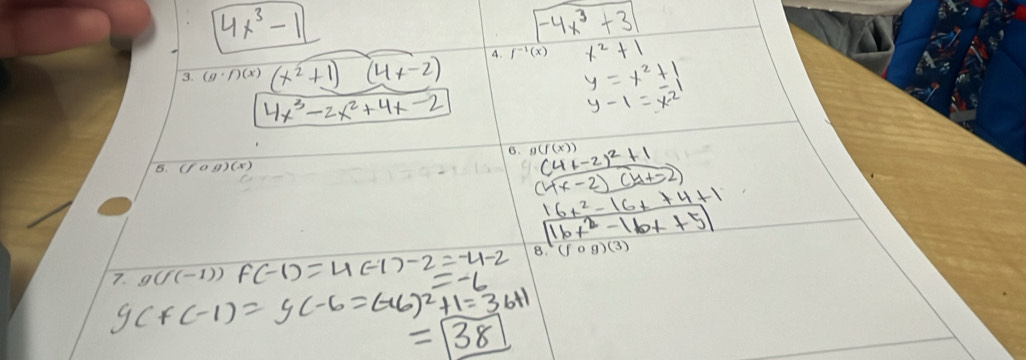 4x³ - 1
-4x³ + 3
3. (g · f)(x) (x² + 1) (4x - 2)
4x³ - 2x² + 4x - 2
4. f⁻¹(x) x² + 1
y = x² + 1
-1
y - 1 = x²
5. (f o g)(x)
6. g(f(x))
(4x - 2)² + 1
(4x - 2) (4x - 2)
16x² - 16x + 4 + 1
16x² - 16x + 5
7. g(f(-1)) f(-1) = 4(-1) - 2 = -4 - 2
= -6
g(f(-1) = g(-6 = (-6)² + 1 = 36+1
= 38
8. (f o g)(3)